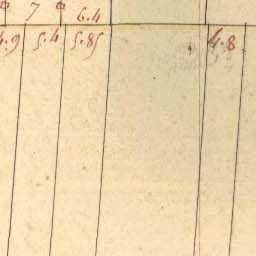 7 6.4
4.9 5.4 5.85 4.8